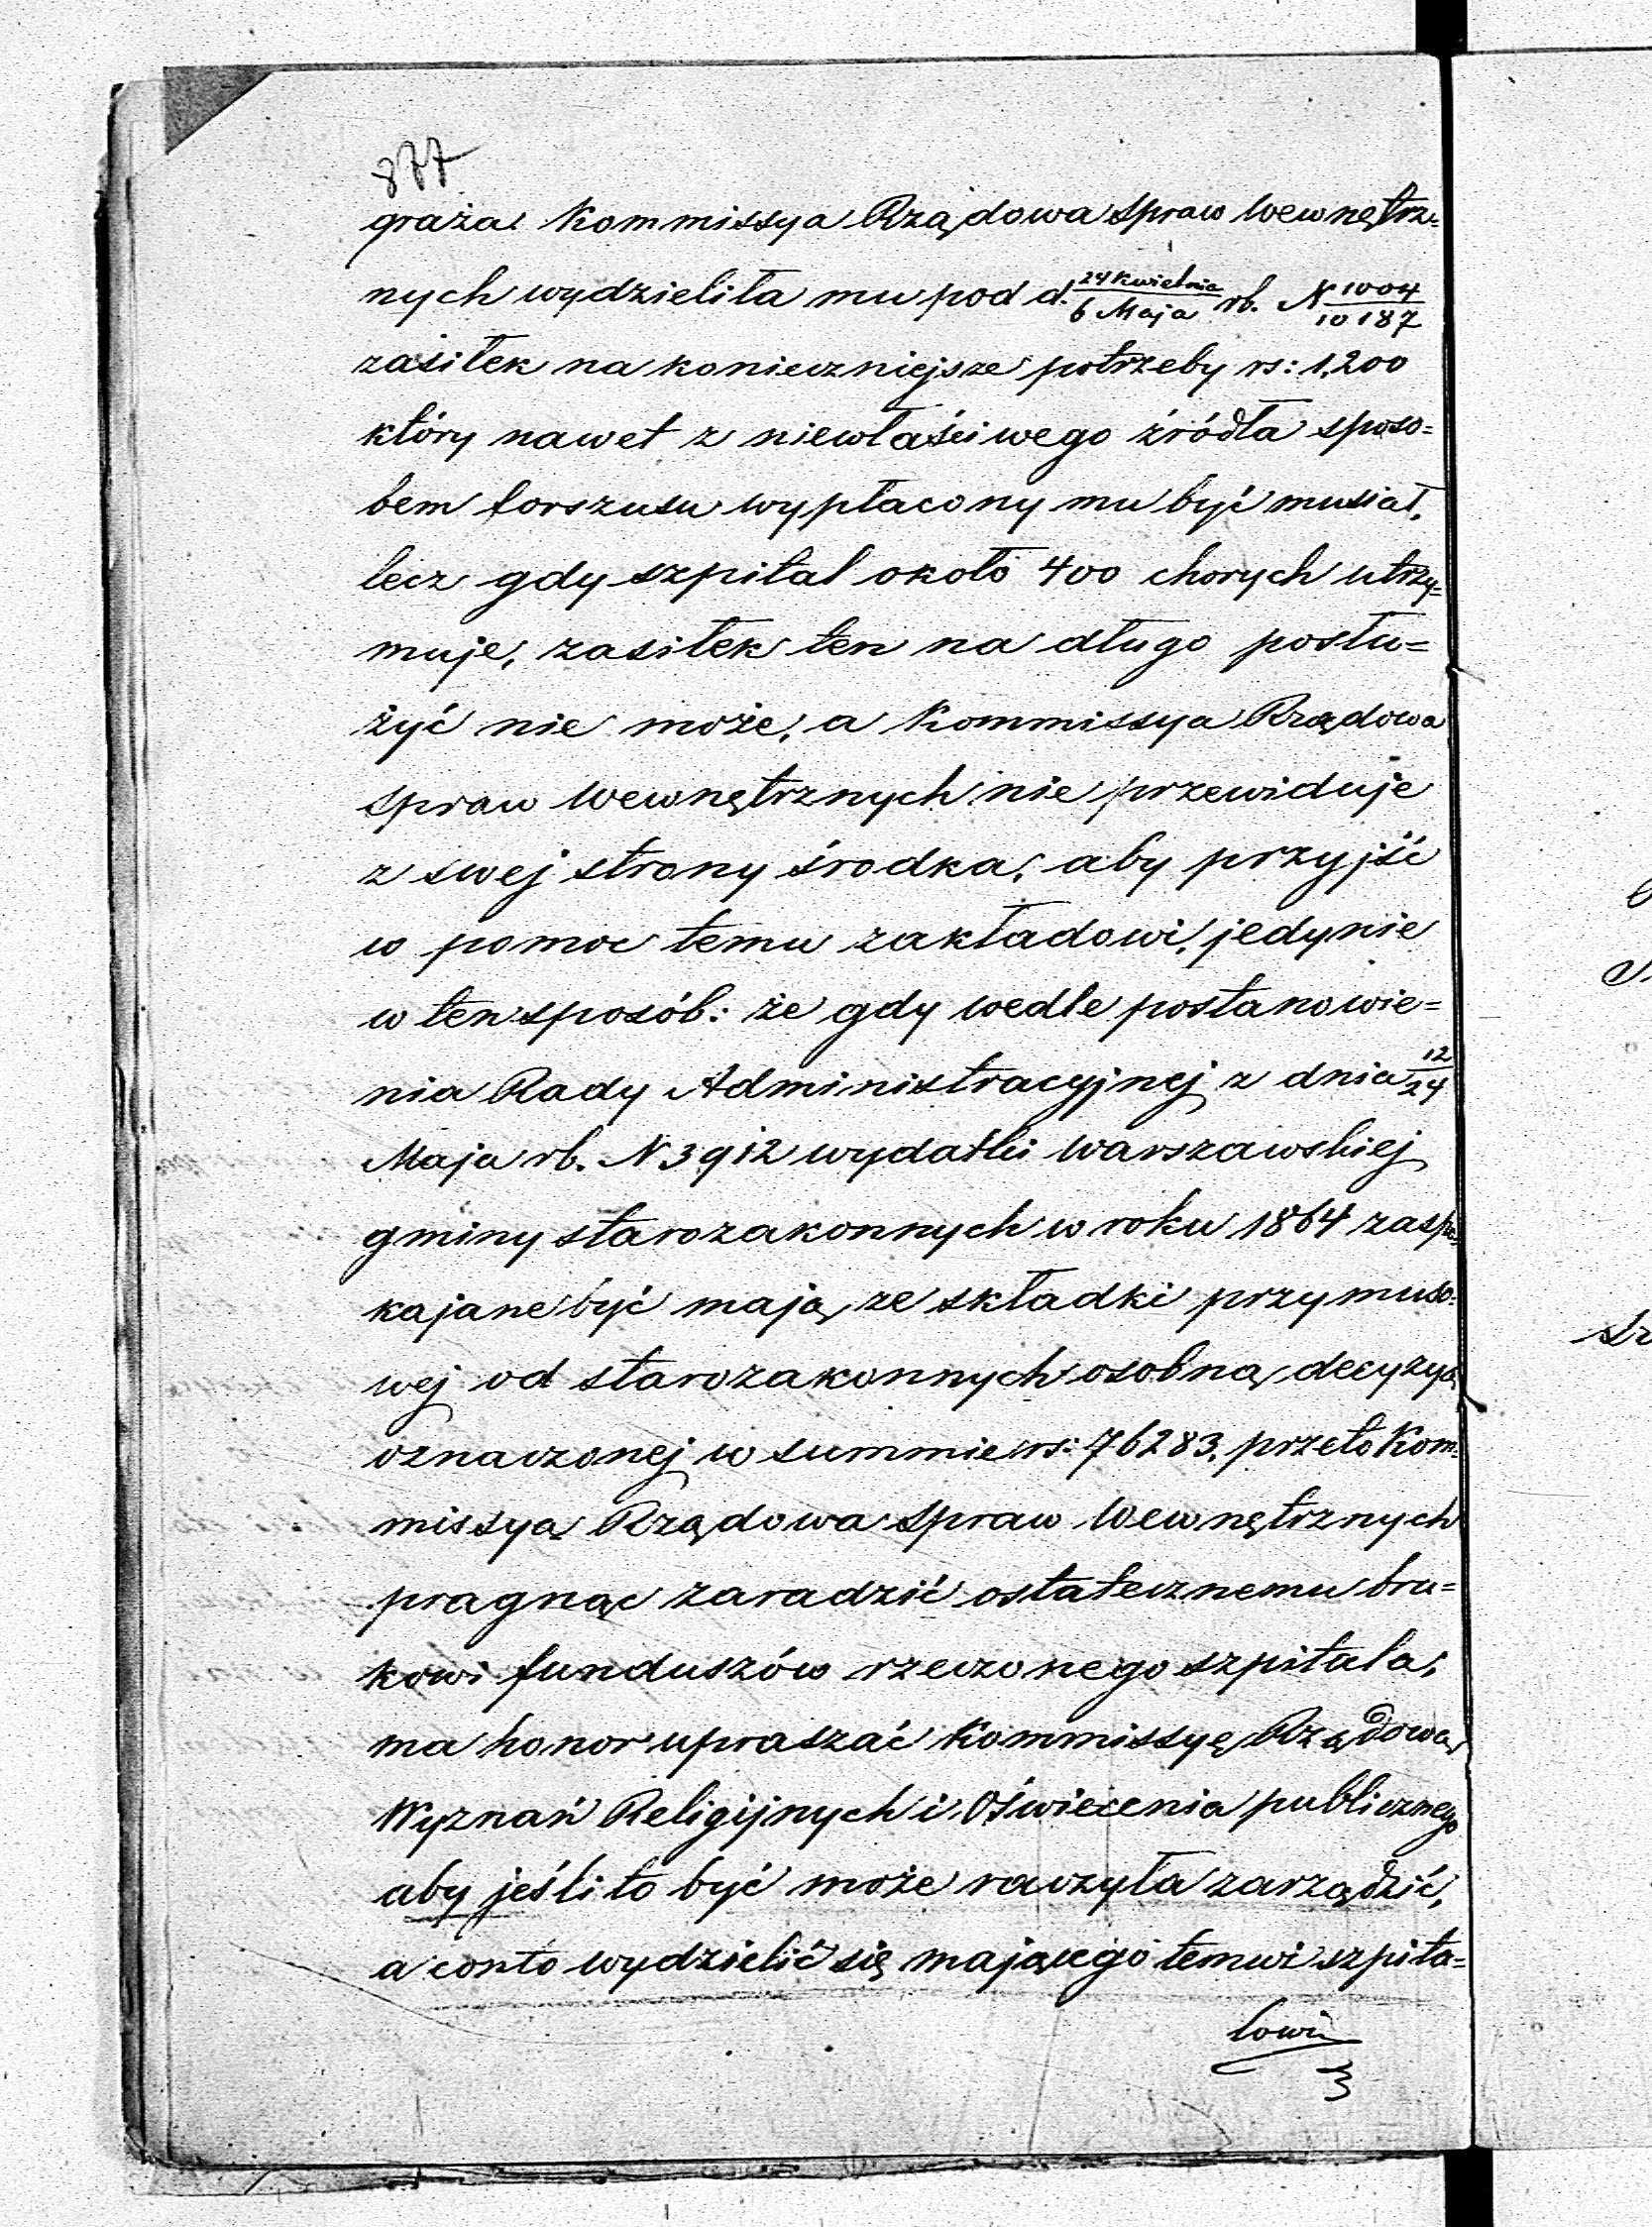 877
graża. Kommissya Rządowa Spraw Wewnętrz=
nych wydzieliła mu pod d. 24 Kwietnia / 6 Maja rb. N 1004 / 10187
zasiłek na konieczniejsze potrzeby rs: 1,200
który nawet z niewłaściwego źródła sposo=
bem forszusu wypłacony mu być musiał,
lecz gdy szpital około 400 chorych utrzy=
muje, zasiłek ten na długo posłu=
żyć nie może, a Kommissya Rządowa
Spraw Wewnętrznych nie przewiduje
z swej strony środka, aby przyjść
w pomoc temu zakładowi, jedynie
w ten sposób: że gdy wedle postanowie=
nia Rady Administracyjnej z dnia 12/24
Maja rb. N 3912 wydatki Warszawskiej
gminy starozakonnych w roku 1864 zaspo=
kajane być mają ze składki przymuso=
wej od starozakonnych osobną decyzyą
oznaczonej w summie rs: 76283, przeto Kom=
missyą Rządowa Spraw Wewnętrznych
pragnąc zaradzić ostatecznemu bra=
kowi funduszów rzeczonego szpitala,
ma honor upraszać Kommissyę Rządową
Wyznań Religijnych i Oświecenia publicznego
aby jeśli to być może raczyła zarządzić,
a conto wydzielić się mającego temuż szpita=
lowi